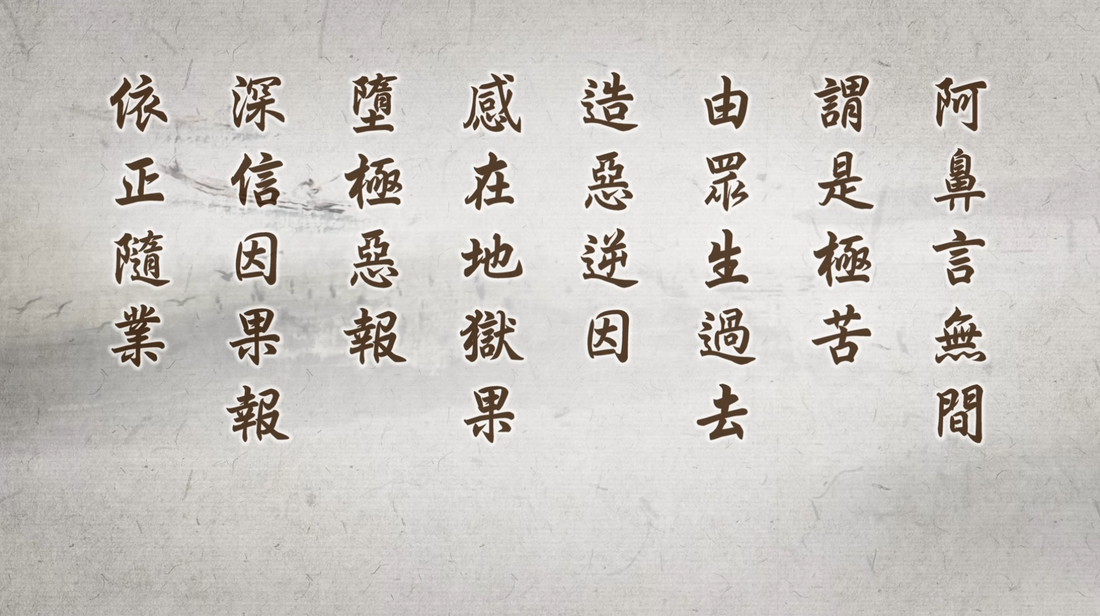 阿鼻言無間
謂是極苦
由眾生過去
造惡逆因
感在地獄果
墮極惡報
深信因果報
依正隨業